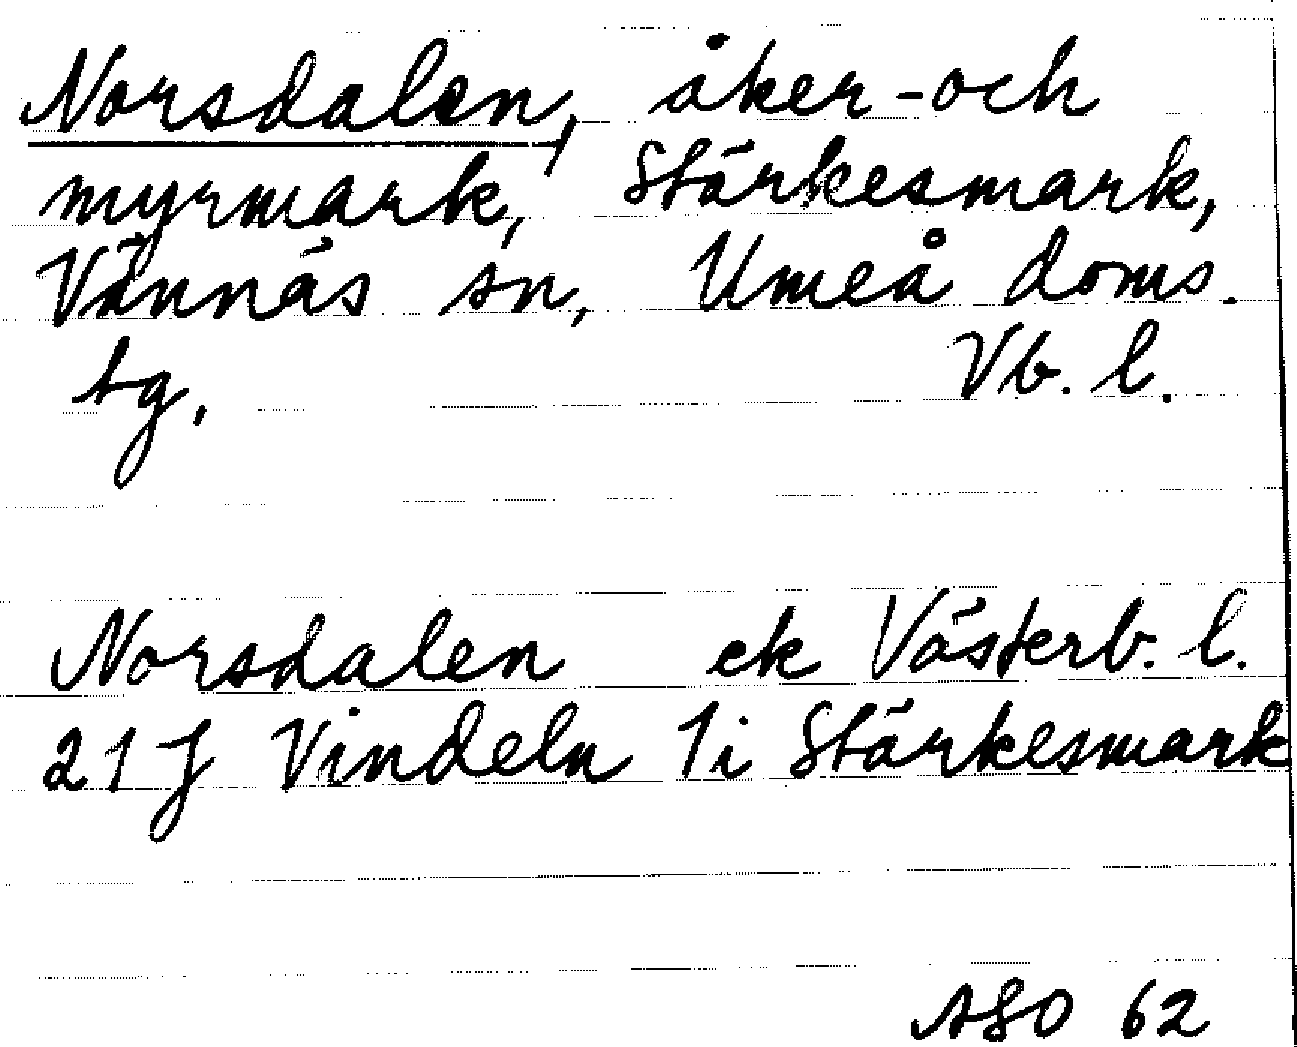 Norsdalen, åker-och
myrmark, Stärkesmark,
Vännäs sn, Umeå doms.
tg, Vb. l.
Norsdalen ek Västerb. l.
21 J Vindeln 1i Stärkesmark
ASO 62